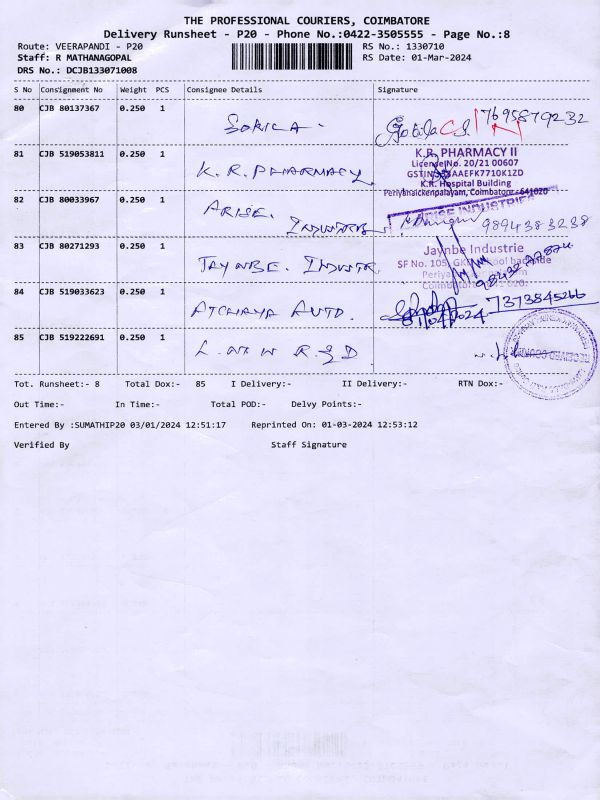 THE PROFESSIONAL COURIERS, COIMBATORE
Delivery Runsheet - P20 - Phone No.:0422-3505555 - Page No.:8
Route: VEERAPANDI - P20 RS No.: 1330710
Staff: R MATHANAGOPAL RS Date: 01-Mar-2024
DRS No.: DCJB133071008
S No Consignment No Weight PCS Consignee Details Signature
80 CJB 80137367 0.250 1 7695879232
81 CJB 519053811 0.250 1 K.R. PHARMACY
K.R. PHARMACY II
License No. 20/21 00607
K.R. Hospital Building
Periyanaickenpalayam, Coimbatore - 641020
82 CJB 80033967 0.250 1 ARISE. INDUSTRIES
ARISE INDUSTRIES
9894383238
83 CJB 80271293 0.250 1 JAYNBE. INDUSTR
Jaynbe Industrie
SF No. 105,
84 CJB 519033623 0.250 1 ATCHAYA AUTO. 7373845266
85 CJB 519222691 0.250 1
Tot. Runsheet:- 8 Total Dox:- 85 I Delivery:- II Delivery:- RTN Dox:-
Out Time:- In Time:- Total POD:- Delvy Points:-
Entered By :SUMATHIP20 03/01/2024 12:51:17 Reprinted On: 01-03-2024 12:53:12
Verified By Staff Signature